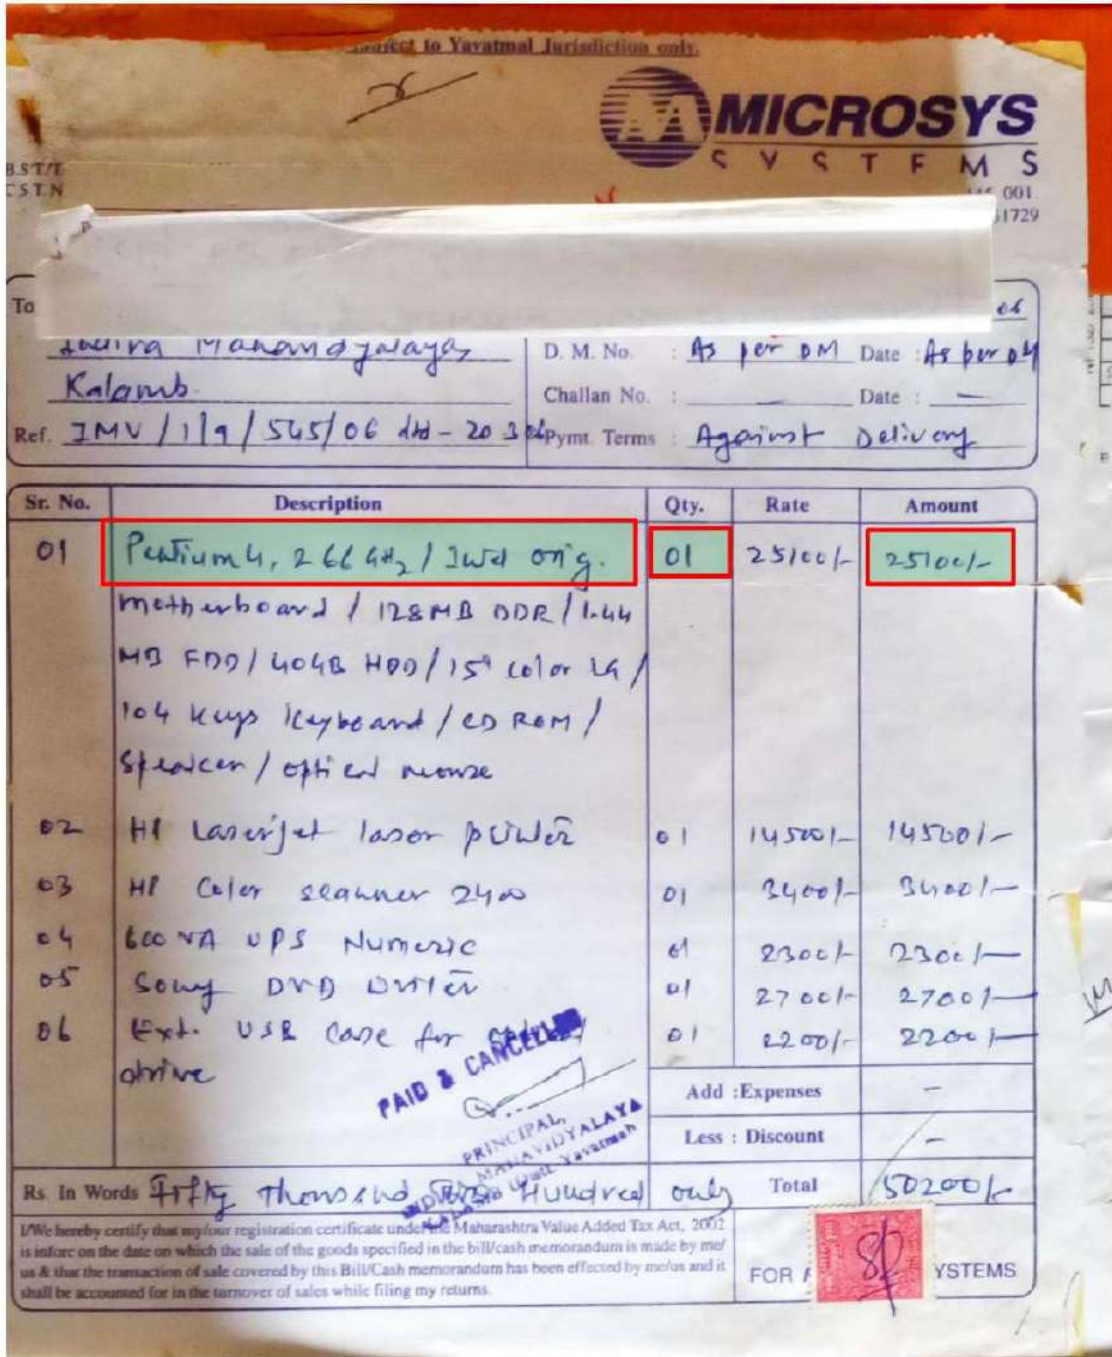 to Yavatmal Jurisdiction only.
MICROSYS
SYSTEMS
B.S.T/E
C S T. N
001.
51729
To
06
Indira Mahavidyalaya,
D. M. No. : As per DM Date : As per DM
Kalamb.
Challan No. : — Date : —
Ref. IMV/1/9/545/06 dtd - 20.3.06
Pymt. Terms : Against Delivery
Sr. No. Description Qty. Rate Amount
01 Pentium 4, 2.66 GHz / Intel orig. 01 25100/- 25100/-
motherboard / 128MB DDR / 1.44
MB FDD / 40GB HDD / 15" color LG /
104 keys keyboard / CD ROM /
Speaker / optical mouse
02 HP Laserjet laser printer 01 14500/- 14500/-
03 HP Color scanner 2400 01 3400/- 3400/-
04 600 VA UPS Numeric 01 2300/- 2300/-
05 Sony DVD Writer 01 2700/- 2700/-
06 Ext. USB Case for 01 2200/- 2200/-
drive
PAID & CANCELLED
PRINCIPAL,
INDIRA MAHAVIDYALAYA
Yavatmal
Add :Expenses –
Less : Discount –
Rs. In Words Fifty Thousand Two Hundred only Total 50200/-
I/We hereby certify that my/our registration certificate under the Maharashtra Value Added Tax Act, 2002
is inforc on the date on which the sale of the goods specified in the bill/cash memorandum is made by me/
us & that the transaction of sale covered by this Bill/Cash memorandum has been effected by me/us and it
shall be accounted for in the turnover of sales while filing my returns.
FOR YSTEMS